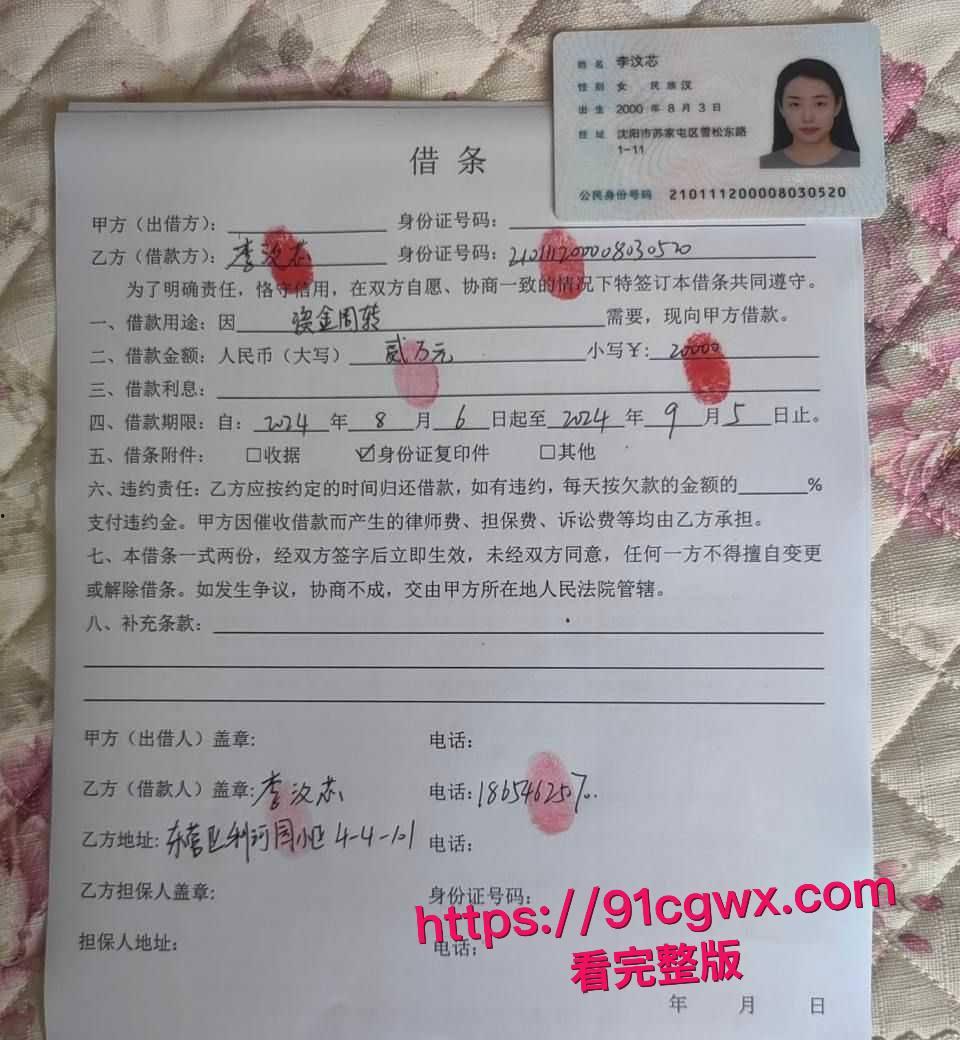 姓名 李汶芯
性别 女 民族 汉
出生 2000 年 8 月 3 日
住址 沈阳市苏家屯区雪松东路
1-11
公民身份号码 210111200008030520
借 条
甲方（出借方）： 身份证号码：
乙方（借款方）：李汶芯 身份证号码：210111200008030520
为了明确责任，恪守信用，在双方自愿、协商一致的情况下特签订本借条共同遵守。
一、借款用途：因 资金周转 需要，现向甲方借款。
二、借款金额：人民币（大写） 贰万元 小写￥: 20000
三、借款利息：
四、借款期限：自： 2024 年 8 月 6 日起至 2024 年 9 月 5 日止。
五、借条附件： □收据 ☑身份证复印件 □其他
六、违约责任：乙方应按约定的时间归还借款，如有违约，每天按欠款的金额的______%
支付违约金。甲方因催收借款而产生的律师费、担保费、诉讼费等均由乙方承担。
七、本借条一式两份，经双方签字后立即生效，未经双方同意，任何一方不得擅自变更
或解除借条。如发生争议，协商不成，交由甲方所在地人民法院管辖。
八、补充条款：
甲方（出借人）盖章: 电话：
乙方（借款人）盖章: 李汶芯 电话:
乙方地址: 东营区利河园小区 4-4-101 电话：
乙方担保人盖章： 身份证号码：
担保人地址： 电话：
https://91cgwx.com
看完整版
年 月 日